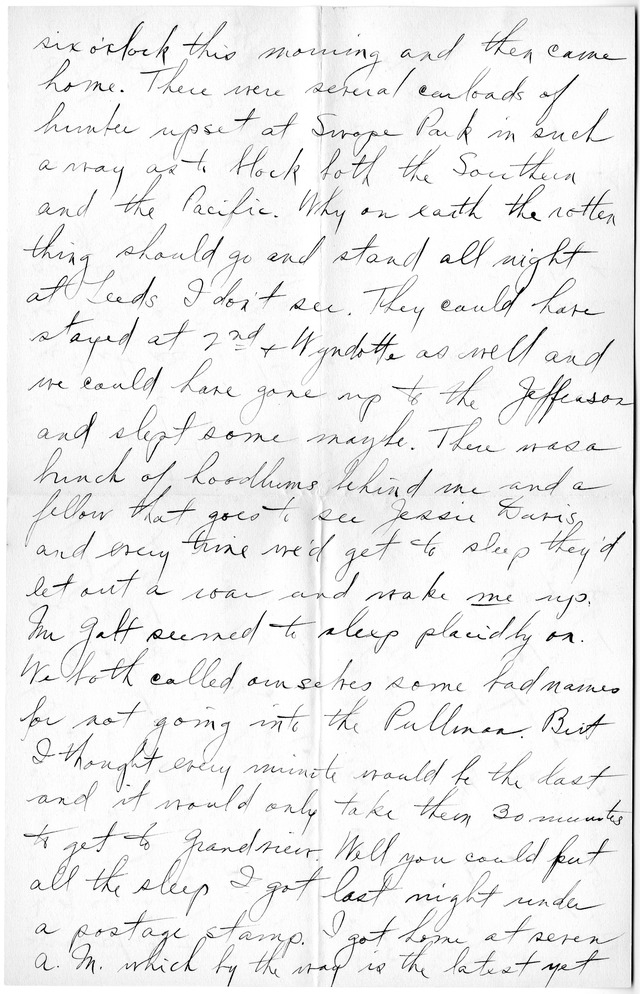 six o'clock this morning and then came
home. There were several carloads of
lumber upset at Swope Park in such
a way as to block both the Southern
and the Pacific. Why on earth the rotten
thing should go and stand all night
at Leeds I don't see. They could have
stayed at 2nd + Wyndotte as well and
we could have gone up to the Jefferson
and slept some maybe. There was a
bunch of hoodlums behind me and a
fellow that goes to see Jessie Davis
and every time we'd get to sleep they'd
let out a roar and wake me up.
Mr Galt seemed to sleep placidly on.
We both called ourselves some bad names
for not going into the Pullman. But
I thought every minute would be the last
and it would only take them 30 minutes
to get to Grandview. Well you could put
all the sleep I got last night under
a postage stamp. I got home at seven
A. M. which by the way is the latest yet